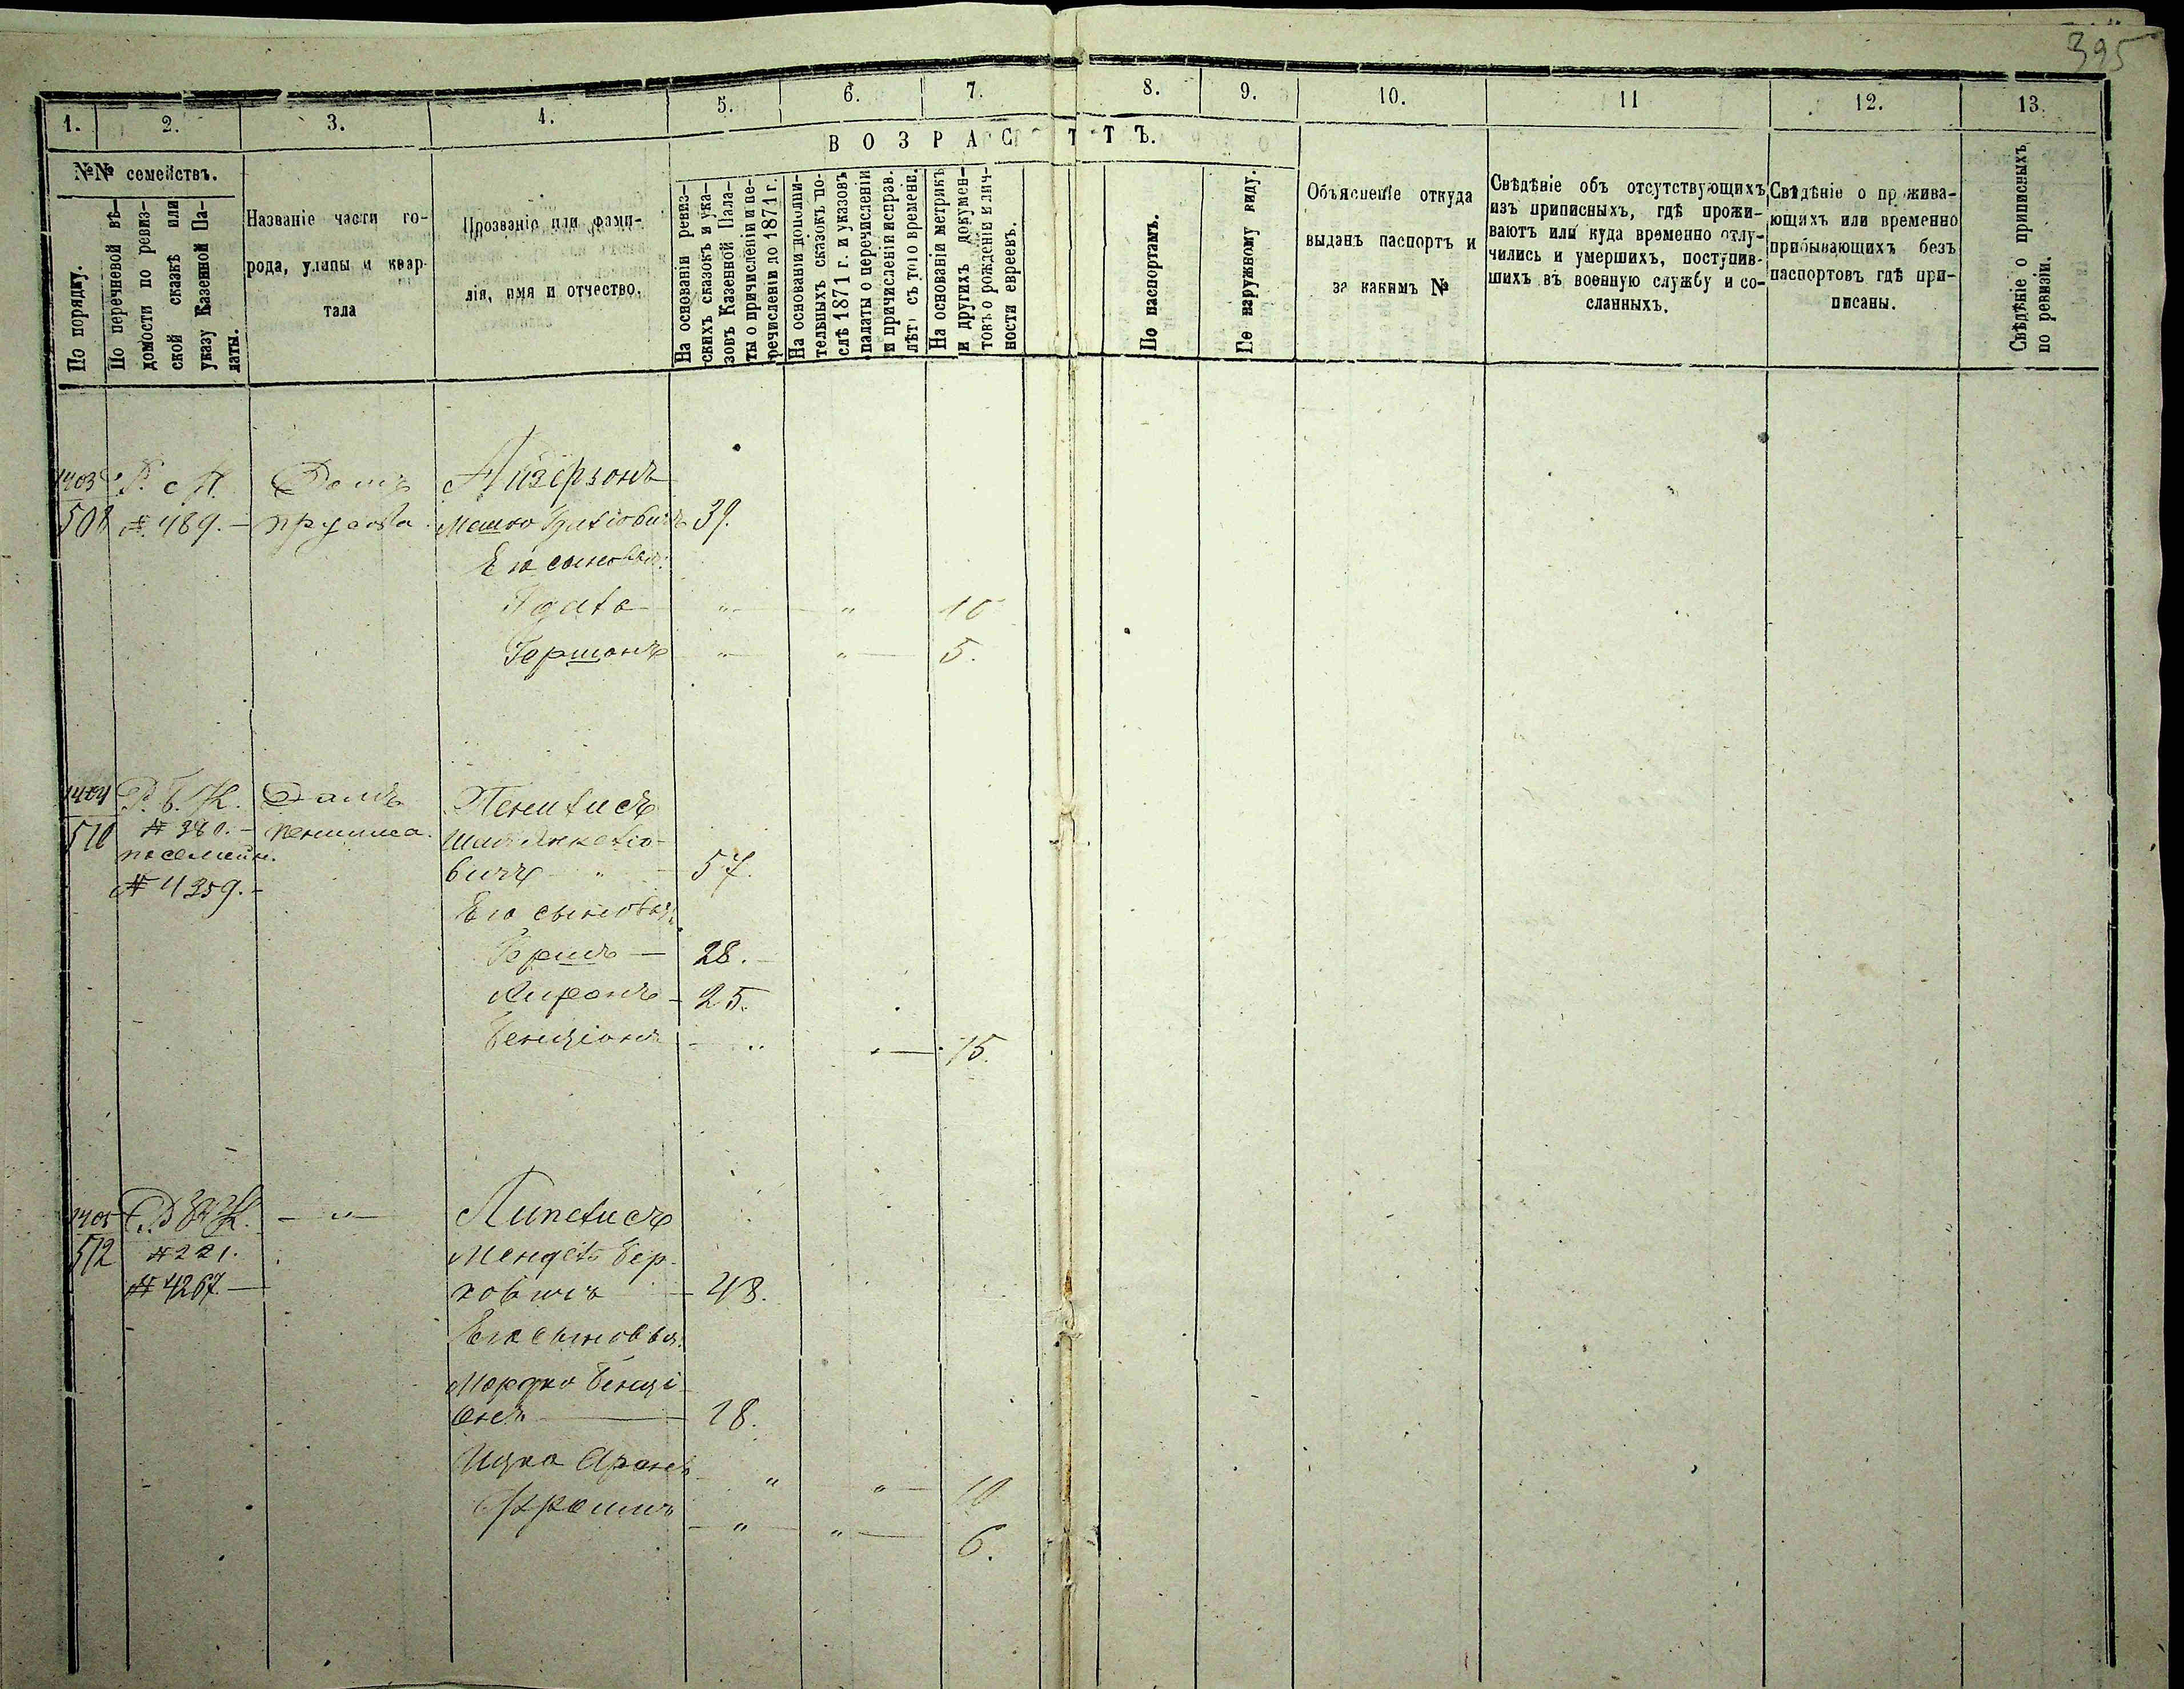 395
1. 2. 3. 4. 5. 6. 7. 8. 9. 10. 11 12. 13.
ВОЗРАСТЪ.
№№ семействъ.
По порядку.
По перечневой вѣ-
домости по ревиз-
ской сказкѣ или
указу Казенной Па-
латы.
Названіе части го-
рода, улицы и квар-
тала
Прозваніе или фами-
лія, имя и отчество.
На основаніи ревиз-
скихъ сказокъ и ука-
зовъ Казенной Пала-
ты о причисленіи и пе-
речисленіи до 1871 г.
На основаніи дополни-
тельныхъ сказокъ по-
слѣ 1871 г. и указовъ
палаты о перечисленіи
и причисленіи исправ.
лѣтъ съ того времени.
На основаніи метрикъ
и другихъ докумен-
товъ о рожденіи и лич-
ности евреевъ.
По паспортамъ.
По наружному виду.
Объясненіе откуда
выданъ паспортъ и
за какимъ №
Свѣдѣніе объ отсутствующихъ
изъ приписныхъ, гдѣ прожи-
ваютъ или куда временно отлу-
чились и умершихъ, поступив-
шихъ въ военную службу и со-
сланныхъ.
Свѣдѣніе о прожива-
ющихъ или временно
прибывающихъ безъ
паспортовъ гдѣ при-
писаны.
Свѣдѣніе о приписныхъ
по ревизіи.
1403 Домъ
№ 489. — 39.
Его сыновья:
" " 10
Гершонъ " " 5.
1404 Домъ
510 № 380. —
посемейн.
№ 4359. — вичъ " 57.
Его сыновья:
Гершъ — 28.
25.
Бенціонъ — " " 15.
1405 — " — Липелисъ
512 № 221. Мендель Бер-
№ 4267. — ковичъ — 48.
Его сыновья:
Мордко Бенці-
онъ — 18.
Ицко Аронъ " " 10
Фроимъ " " 6.